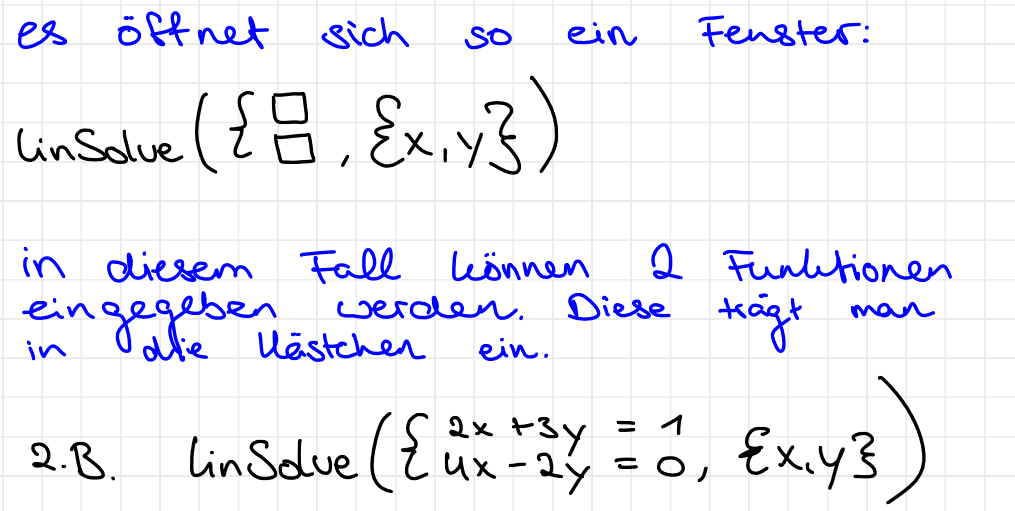 es öffnet sich so ein Fenster:
linSolve({□□, {x,y})
in diesem Fall können 2 Funktionen
eingegeben werden. Diese trägt man
in die Kästchen ein.
z.B. linSolve({2x+3y = 1
4x-2y = 0, {x,y})